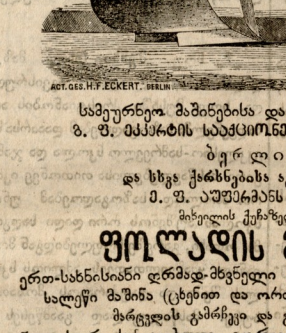 ACT. GES. H. F. ECKERT, BERLIN
სამეურნეო მაშინებისა და
ჰ. ფ. ეკკერტის სააქციონე
ბერლი
და სხვა ქარხნებისა
ე. ფ. აუფერმანს
მიხეილის ქუჩაზე
ფოლადის
ერთ-სახნისიანი ღრმად-მხვნელი
სალეწი მაშინა (ცხენით და ორთ
მარცვლის გამრჩევი და გ